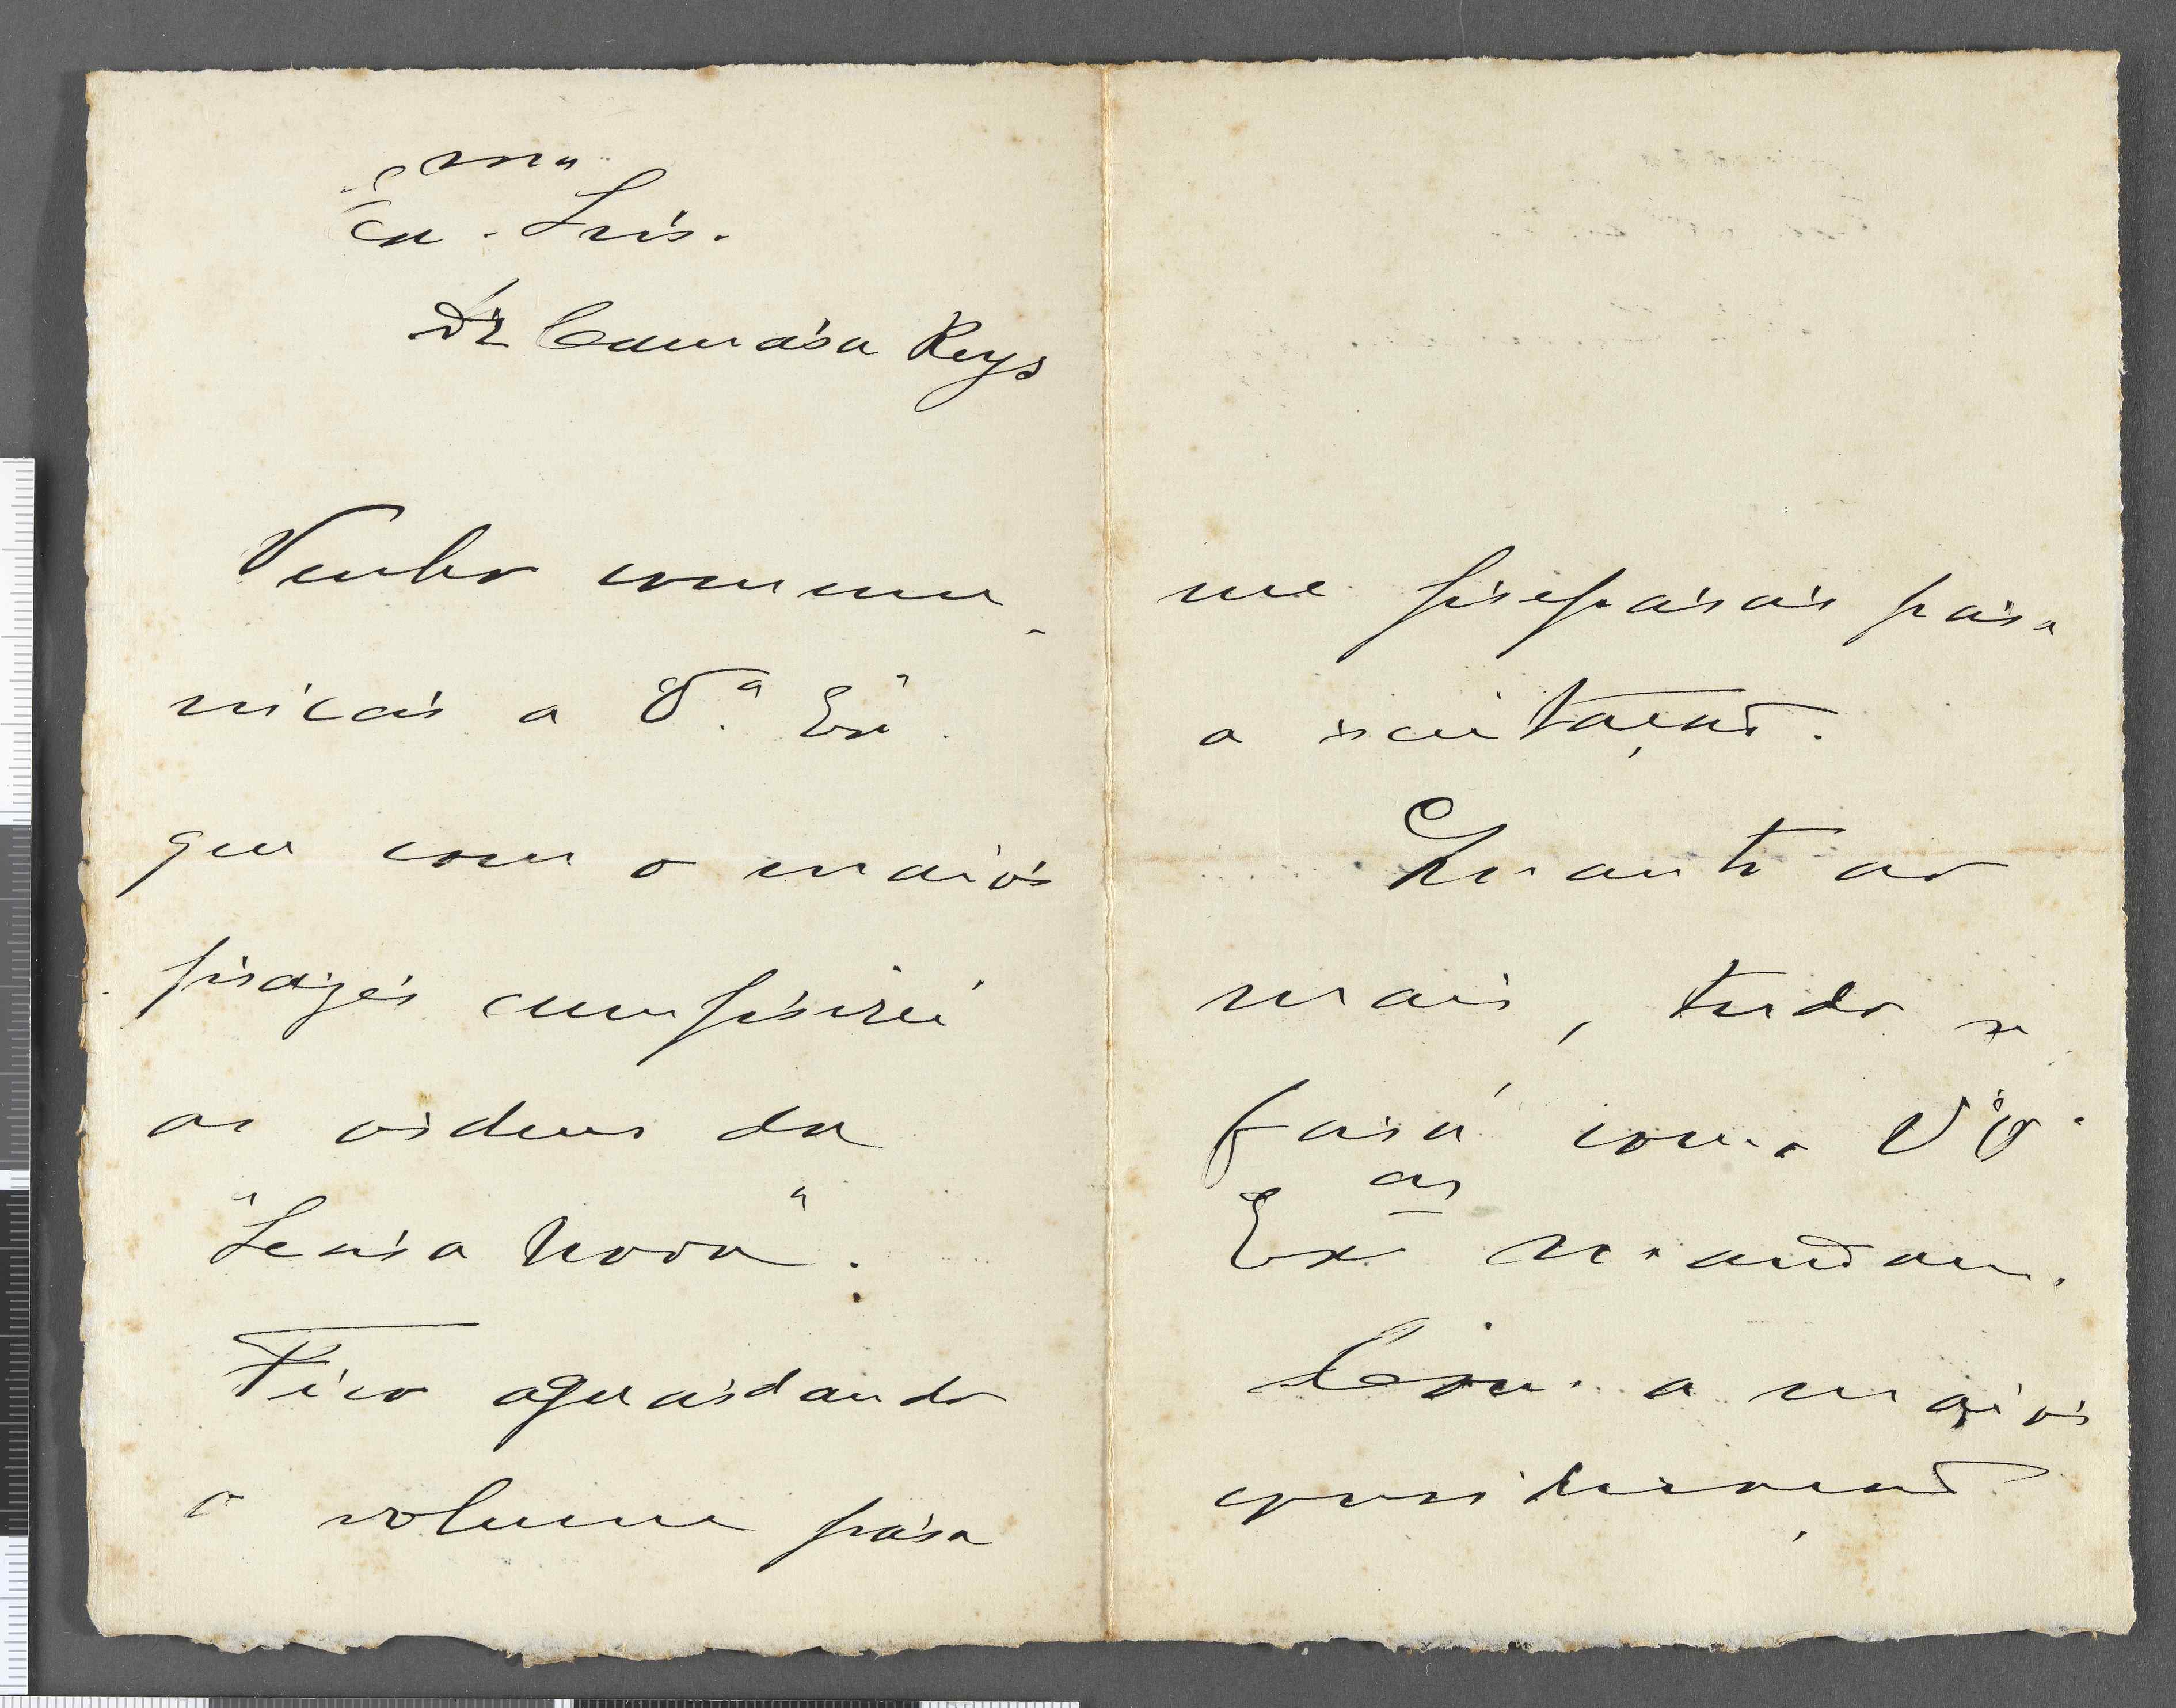 Exmo. Snr.
Dr Camara Reys
Venho commu-
nicar a V.a Ex.a
que com o maior
prazer cumprirei
as ordens da
"Seara Nova".
Fico aguardando
o volume para
me preparar para
a recitação.
Quanto ao
mais, tudo se
fará como V.V.
Ex.as mandam.
Com a maior
consideração